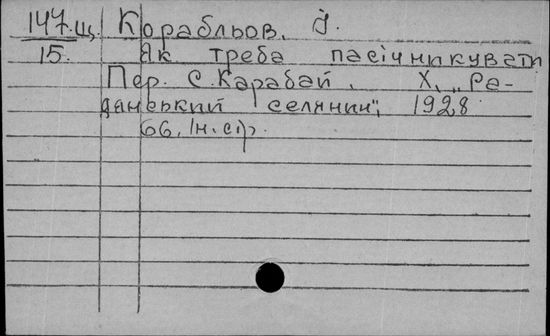 147.щ. Корабльов. І.
15. Як треба пасічникувати
Пер. С. Карабай. Х. „Ра-
дянський селянин",
1928
66. Ін. стр.